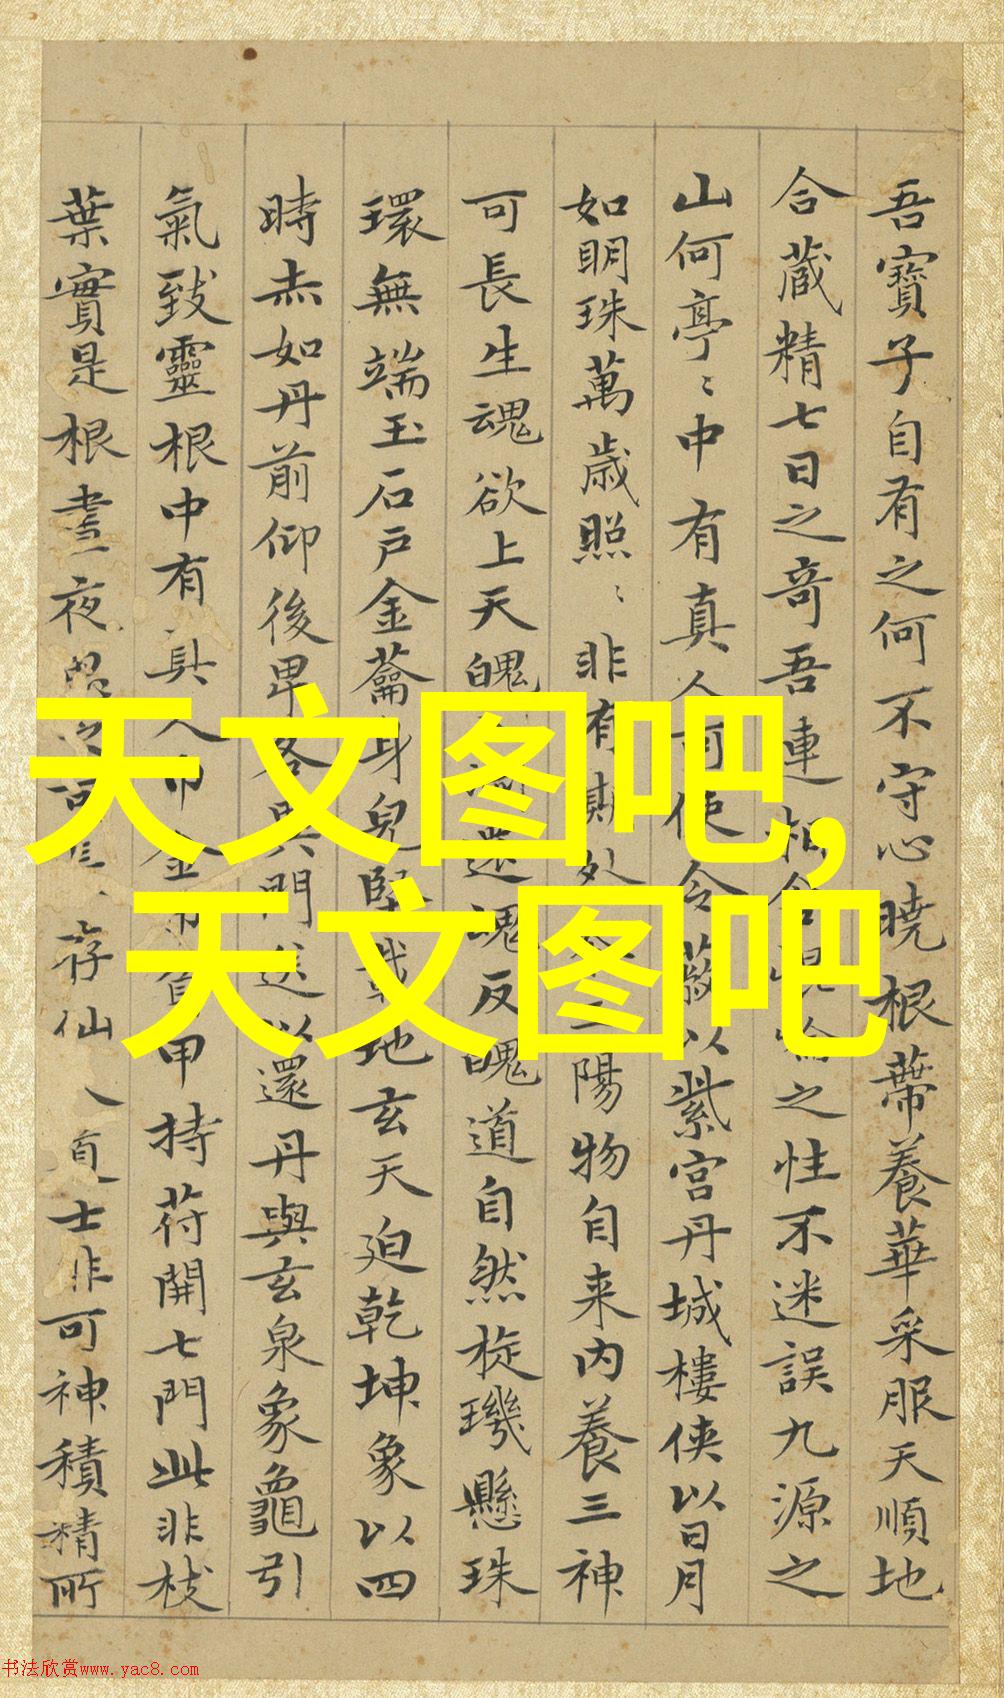 吾寶子自有之何不守心曉根蔕養華采服天順地
合蔵精七日之竒吾連相合之性不迷誤九源之
山何亭〻中有真人可使令蔽以紫宮丹城樓侠以日月
如明珠萬歲照〻非有期処陽物自来内養三神
可長生魂欲上天魄還魂反魄道自然㫌璣懸珠
環無端玉石戸金蘥身皃堅地玄天迫乾坤象以四
時赤如丹前仰後卑各異門送以還丹與玄泉象龜引
氣致靈根中有真人巾金甲持荷開七門此非枝
葉實是根晝夜存仙人士非可神積精所
天文图吧,
天文图吧
书法欣赏www.yac8.com